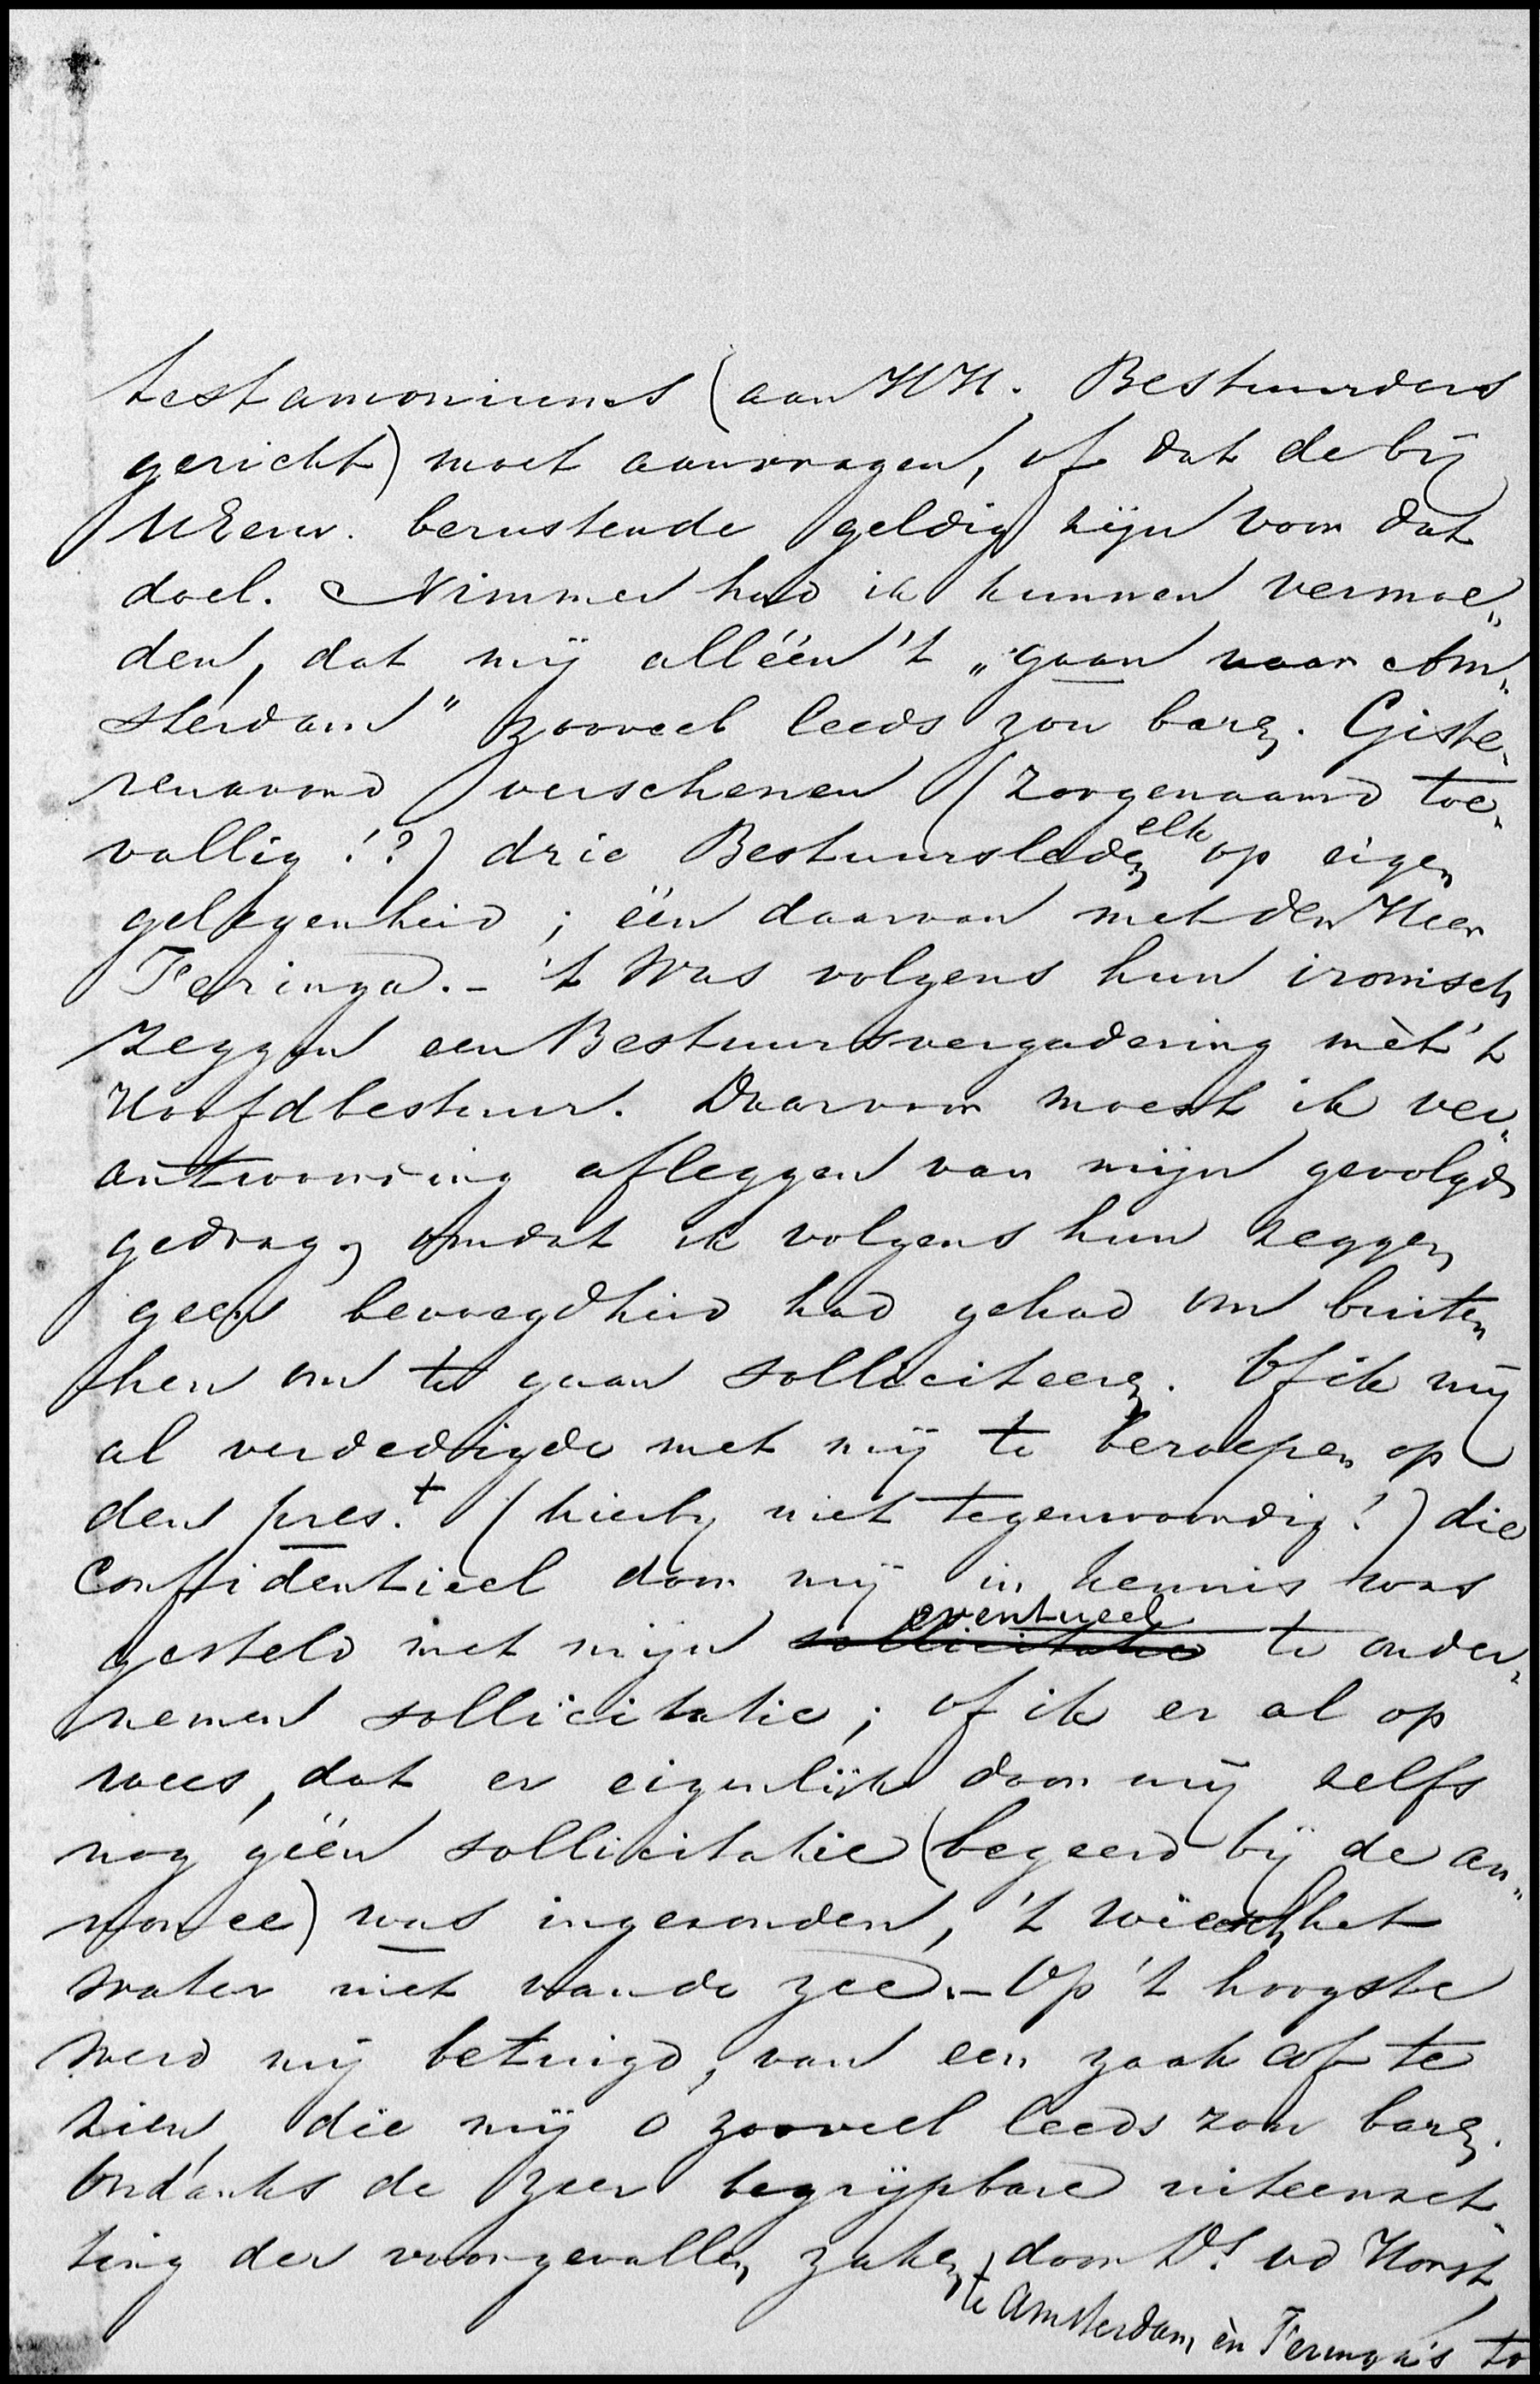 testamoniums (aan HH. Bestuurders
gericht) moet aanvragen, of dat de bij
UEerw. berustende geldig zijn voor dat
doel. Nimmer had ik kunnen vermoe„
den, dat mij alléén 't „gaan naar Am„
sterdam" zooveel leeds zou baren. Giste„
renavond verschenen (zoogenaamd toe„
vallig!?) drie Bestuursleden elk op eigen
gelegenheid; één daarvan met den Heer
Feringa. – 't Was volgens hun ironisch
zeggen een Bestuursvergadering mèt 't
Hoofdbestuur. Daarvoor moest ik ver„
antwoording afleggen van mijn gevolgd
gedrag, omdat ik volgens hun zeggen
geen bevoegdheid had gehad om buiten
hen om te gaan solliciteeren. Of ik mij
al verdedigde met mij te beroepen op
den pres.t (hierbij niet tegenwoordig!) die
confidentieel door mij in kennis was
gesteld met mijn sollicitatie eventueel te onder„
nemen sollicitatie; of ik er al op
wees, dat er eigenlijk door mij zelfs
nog géén sollicitatie (begeerd bij de an„
nonce) was ingezonden, 't wiesch het
water niet van de zee. – Op 't hoogste
werd mij betuigd, van een zaak af te
zien, die mij o zooveel leeds zou baren.
Ondanks de zeer begrijpbare uiteenzet„
ting der voorgevallen zaken, door Ds. vd Horst,
te Amsterdam, èn Feringa's to